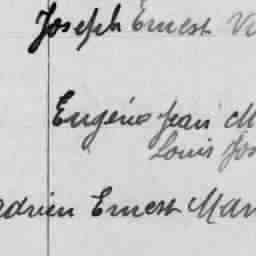 Joseph Ernest Vi
Eugène Jean M
Louis Jos
Adrien Ernest Mar